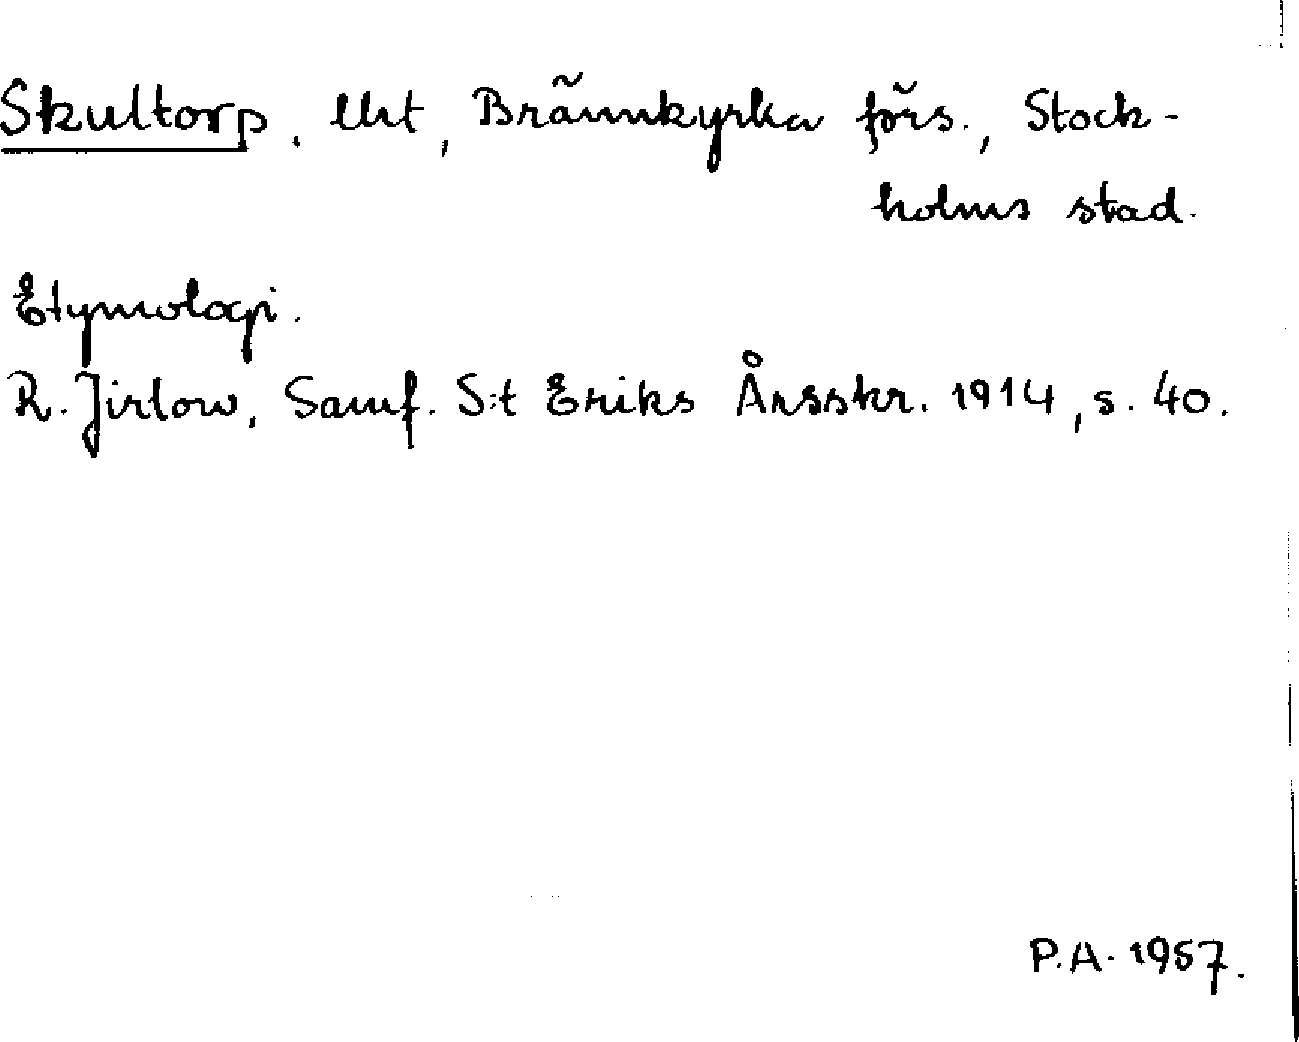 Skultorp. lht, Brännkyrka förs., Stock-
holms stad.
Etymologi.
R. Jirlow, Samf. S:t Eriks Årsskr. 1914, s. 40.
P.A. 1957.